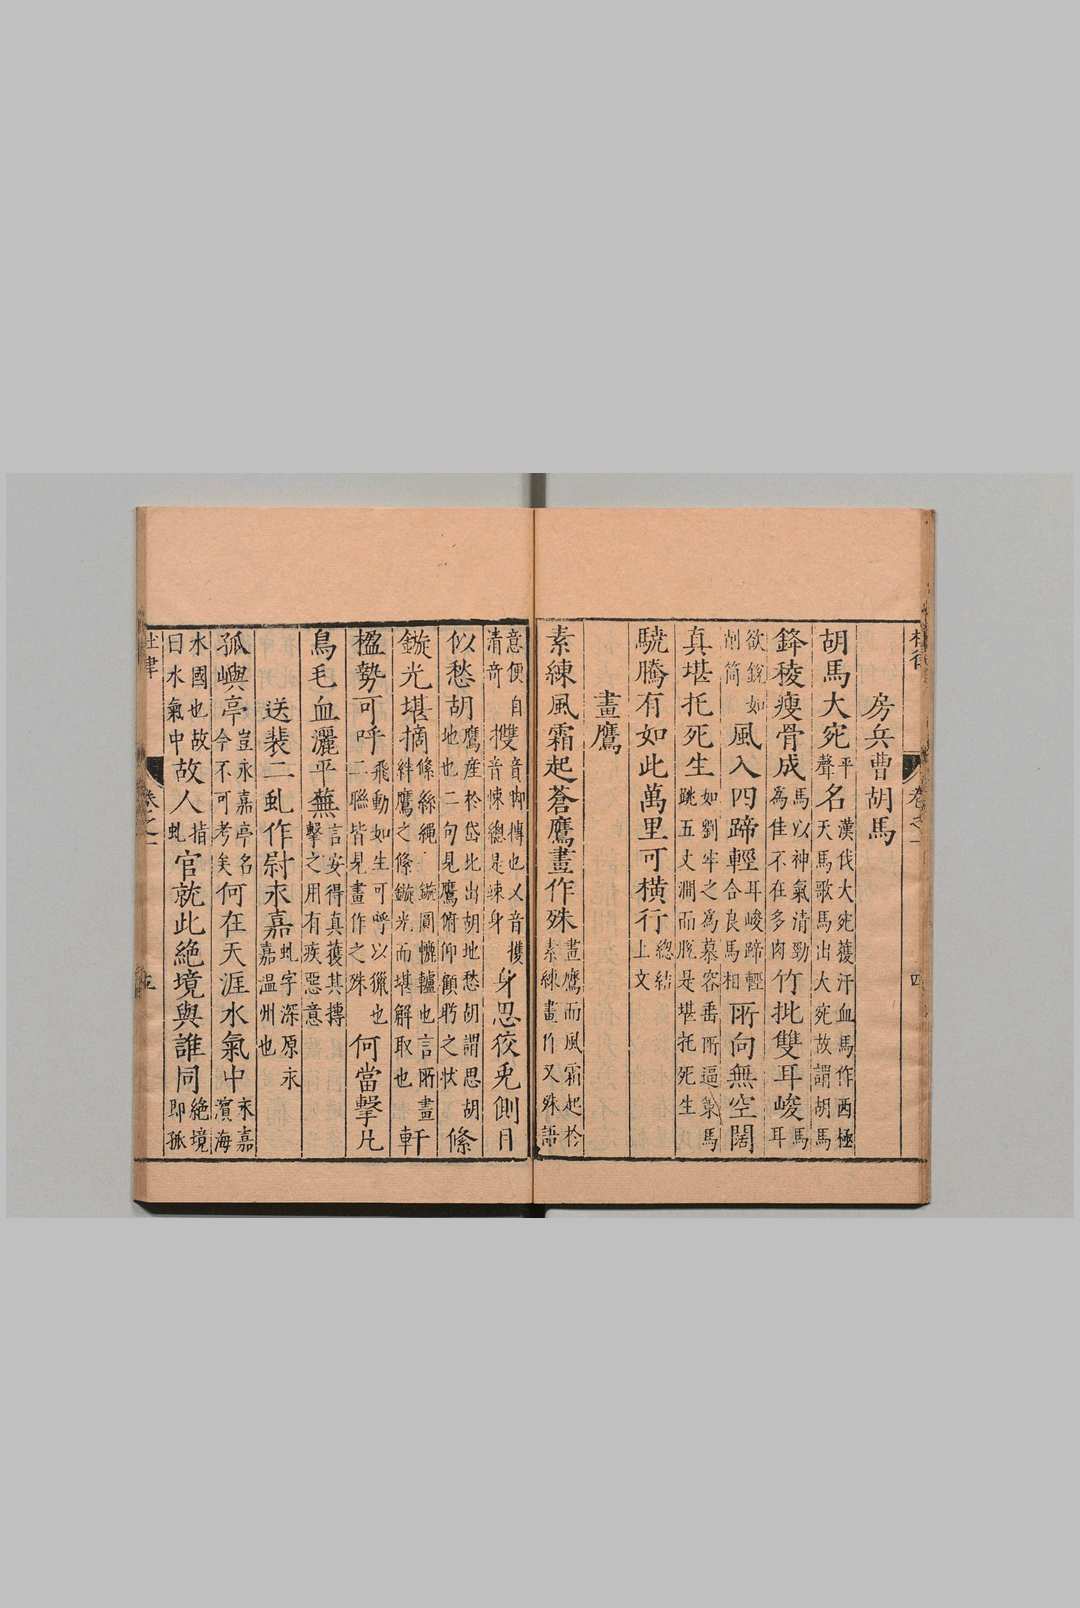 杜律
卷之一
四
房兵曹胡馬
胡馬大宛平聲名漢伐大宛獲汗血馬作西極天馬歌馬出大宛故謂胡馬
鋒稜瘦骨成馬以神氣清勁為佳不在多肉竹批雙耳峻馬耳
欲銳如削筒風入四蹄輕耳峻蹄輕合良馬相所向無空闊
真堪托死生如劉牢之為慕容垂所逼策馬跳五丈澗而脫是堪托死生
驍騰有如此萬里可橫行總結上文
畫鷹
素練風霜起蒼鷹畫作殊畫鷹而風霜起於素練畫作又殊語
意便自清奇㩳音悚摶也又音攫身思狡兎側目
似愁胡鷹產於岱北出胡地愁胡謂思胡地也二句見鷹俯仰顧眄之狀絛
鏇光堪摘絛絲繩鏇圓轆轤也言所畫絆鷹之絛鏇光而堪解取也軒
楹勢可呼飛動如生可呼以獵也二聯皆見畫作之殊何當擊凡
鳥毛血灑平蕪言安得真獲其摶擊之用有疾惡意
送裴二虬作尉永嘉虬字深原永嘉温州也
孤嶼亭豈永嘉亭名今不可考矣何在天涯水氣中永嘉濱海
水國也故曰水氣中故人指虬官就此絶境與誰同絶境即孤
杜律
卷之一
五